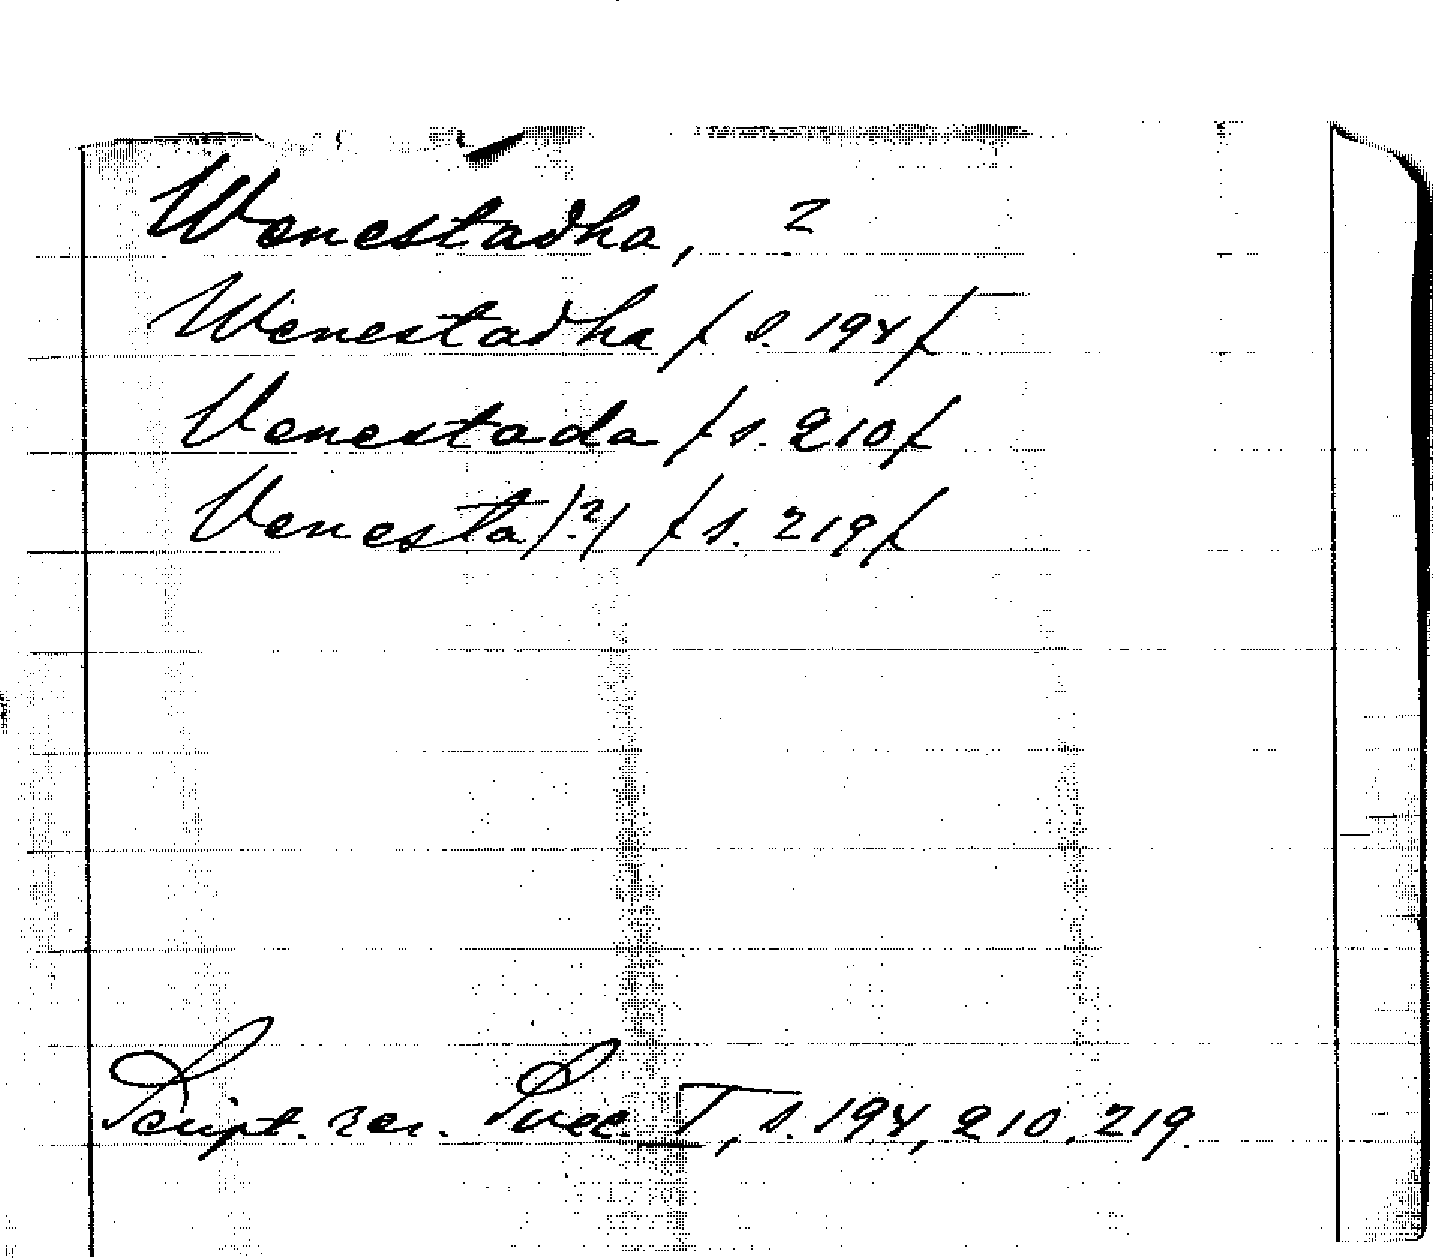 Wenestadha, 2
Wenestadha /s. 194/
Venestada /s. 210/
Venesta/?/ /s. 219/
Script. rer. Suec. I, s. 194, 210, 219.